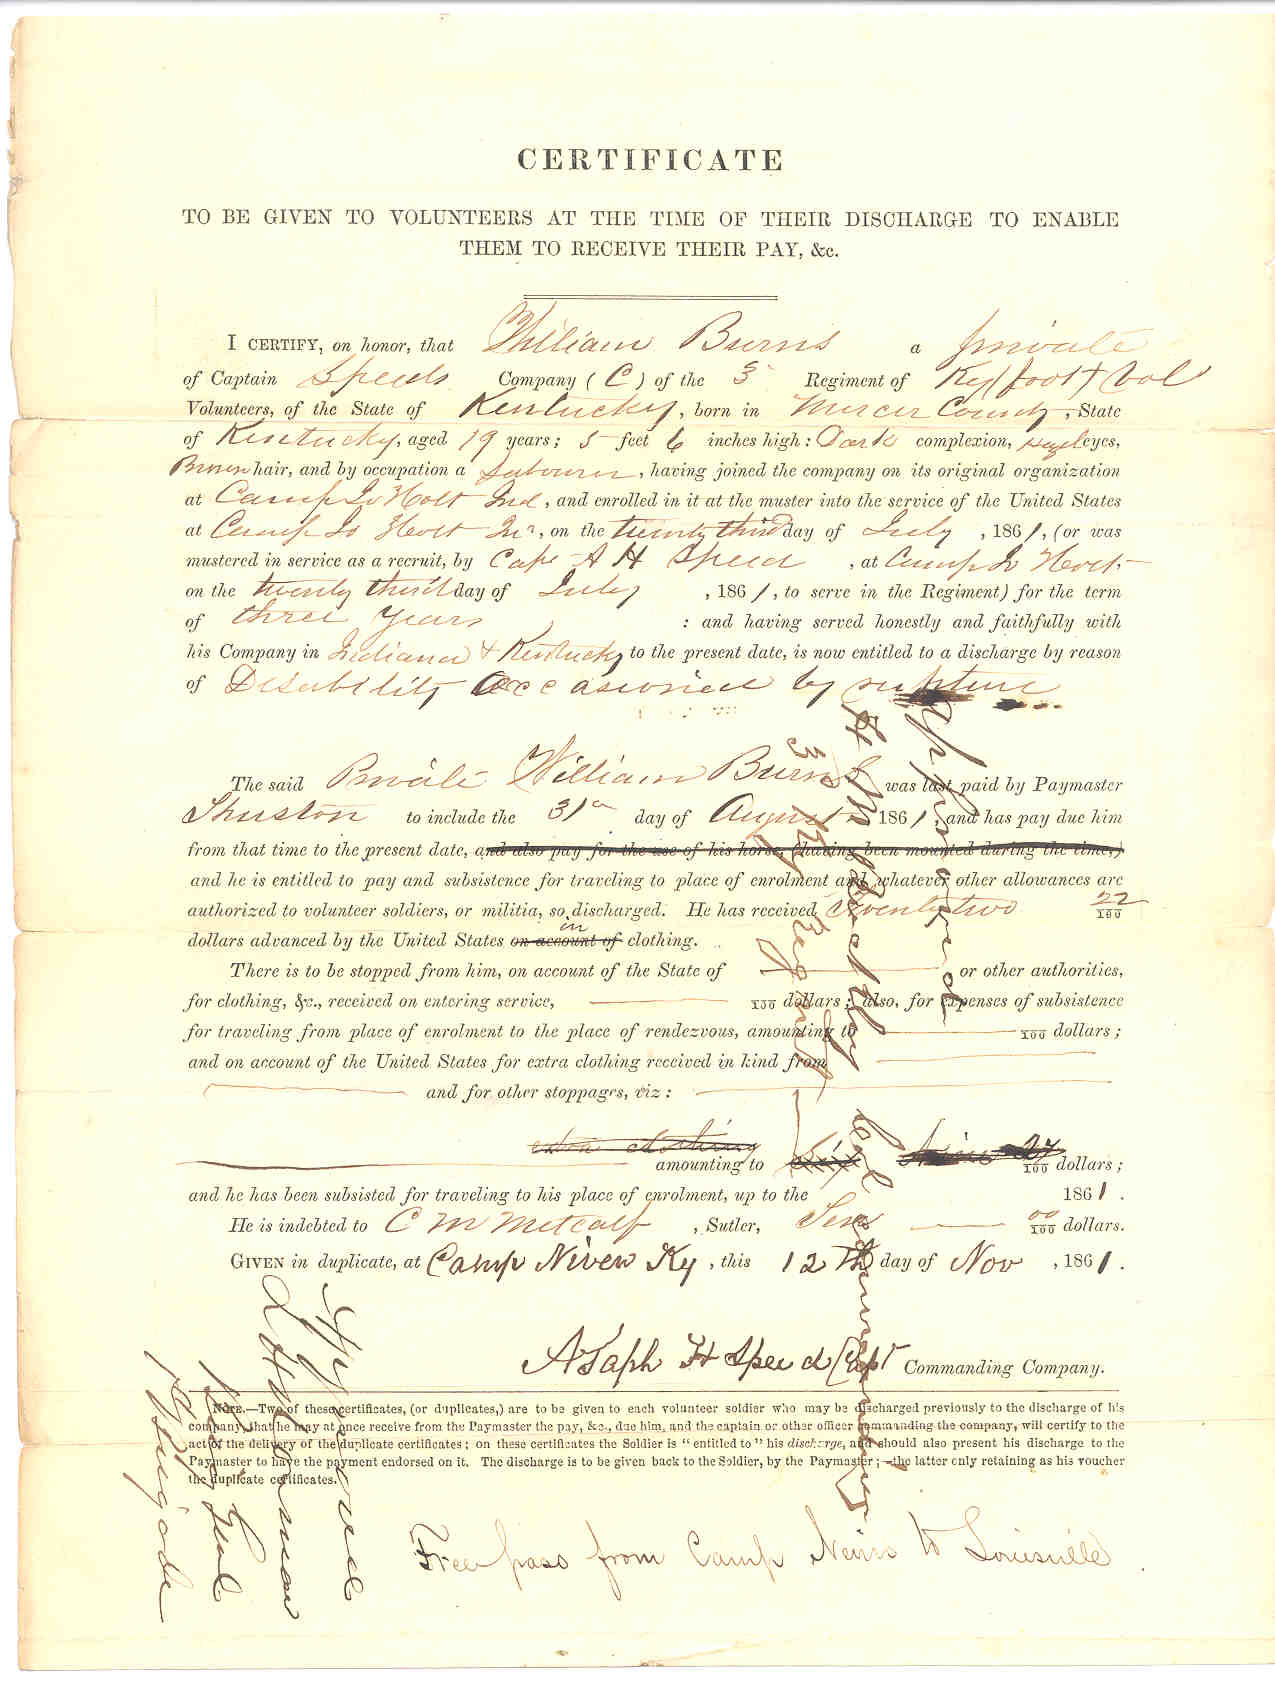 CERTIFICATE
TO BE GIVEN TO VOLUNTEERS AT THE TIME OF THEIR DISCHARGE TO ENABLE
THEM TO RECEIVE THEIR PAY, &c.
I CERTIFY, on honor, that William Burns a private
of Captain Speeds Company (C) of the 3 Regiment of Ky foot Vol
Volunteers, of the State of Kentucky, born in Mercer County, State
of Kentucky, aged 19 years; 5 feet 6 inches high: Dark complexion, Hazel eyes,
Brown hair, and by occupation a Labourer, having joined the company on its original organization
at Camp Jo Holt Ind, and enrolled in it at the muster into the service of the United States
at Camp Jo Holt In, on the twenty third day of July, 1861, (or was
mustered in service as a recruit, by Capt A H Speed, at Camp Jo Holt
on the twenty third day of July, 1861, to serve in the Regiment) for the term
of three years : and having served honestly and faithfully with
his Company in Indiana & Kentucky to the present date, is now entitled to a discharge by reason
of Disability occasioned by rupture
The said Private William Burns was last paid by Paymaster
Thruston to include the 31 day of August 1861, and has pay due him
from that time to the present date, and also pay for the use of his horse, (having been mounted during the time,)
and he is entitled to pay and subsistence for traveling to place of enrolment and whatever other allowances are
authorized to volunteer soldiers, or militia, so discharged. He has received Twenty two 22/100
dollars advanced by the United States on account of in clothing.
There is to be stopped from him, on account of the State of or other authorities,
for clothing, &c., received on entering service, /100 dollars; also, for expenses of subsistence
for traveling from place of enrolment to the place of rendezvous, amounting to /100 dollars;
and on account of the United States for extra clothing received in kind from
and for other stoppages, viz:
extra clothing
amounting to Six /100 dollars;
and he has been subsisted for traveling to his place of enrolment, up to the 1861.
He is indebted to C M Metcalf, Sutler, Ten 00/100 dollars.
GIVEN in duplicate, at Camp Niven Ky, this 12th day of Nov, 1861.
Asaph H Speed Capt Commanding Company.
NOTE.—Two of these certificates, (or duplicates,) are to be given to each volunteer soldier who may be discharged previously to the discharge of his
company, that he may at once receive from the Paymaster the pay, &c., due him, and the captain or other officer commanding the company, will certify to the
act of the delivery of the duplicate certificates; on these certificates the Soldier is "entitled to" his discharge, and should also present his discharge to the
Paymaster to have the payment endorsed on it. The discharge is to be given back to the Soldier, by the Paymaster;—the latter only retaining as his voucher
the duplicate certificates.
Free pass from Camp Nevins to Louisville
Approved
H M Buckley Col Commanding
3 Ky Regmt
Approved
L H Rousseau
Brig Genl
1st Ky Brigade